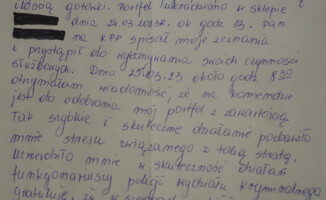 ilością gotówki. Portfel zgubiono w sklepie
dnia 24.03.2023r. ok godz 13. Pan
na KPP spisał moje zeznania
i przystąpił do wykonywania swoich czynności
służbowych. Dnia 25.03.23 około godz 8:50
otrzymałam wiadomość, że na komendzie
jest do odebrania mój portfel z zawartością
Tak szybkie i skuteczne działanie pozbawiło
mnie stresu związanego z taką stratą.
mnie w skuteczność działań
funkcjonariuszy policji wydziału kryminalnego
Gratuluję, że w